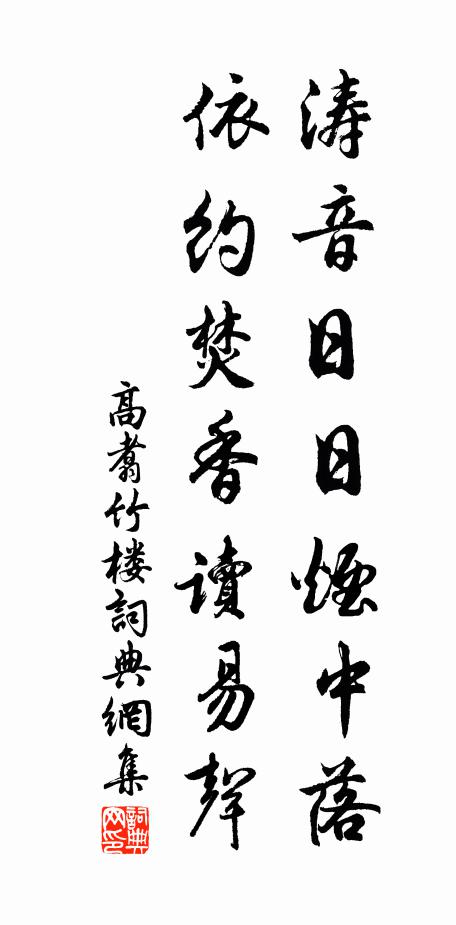 濤音日日煙中落
依約焚香讀易聲
高翥竹楼詞典網集
詞典网印